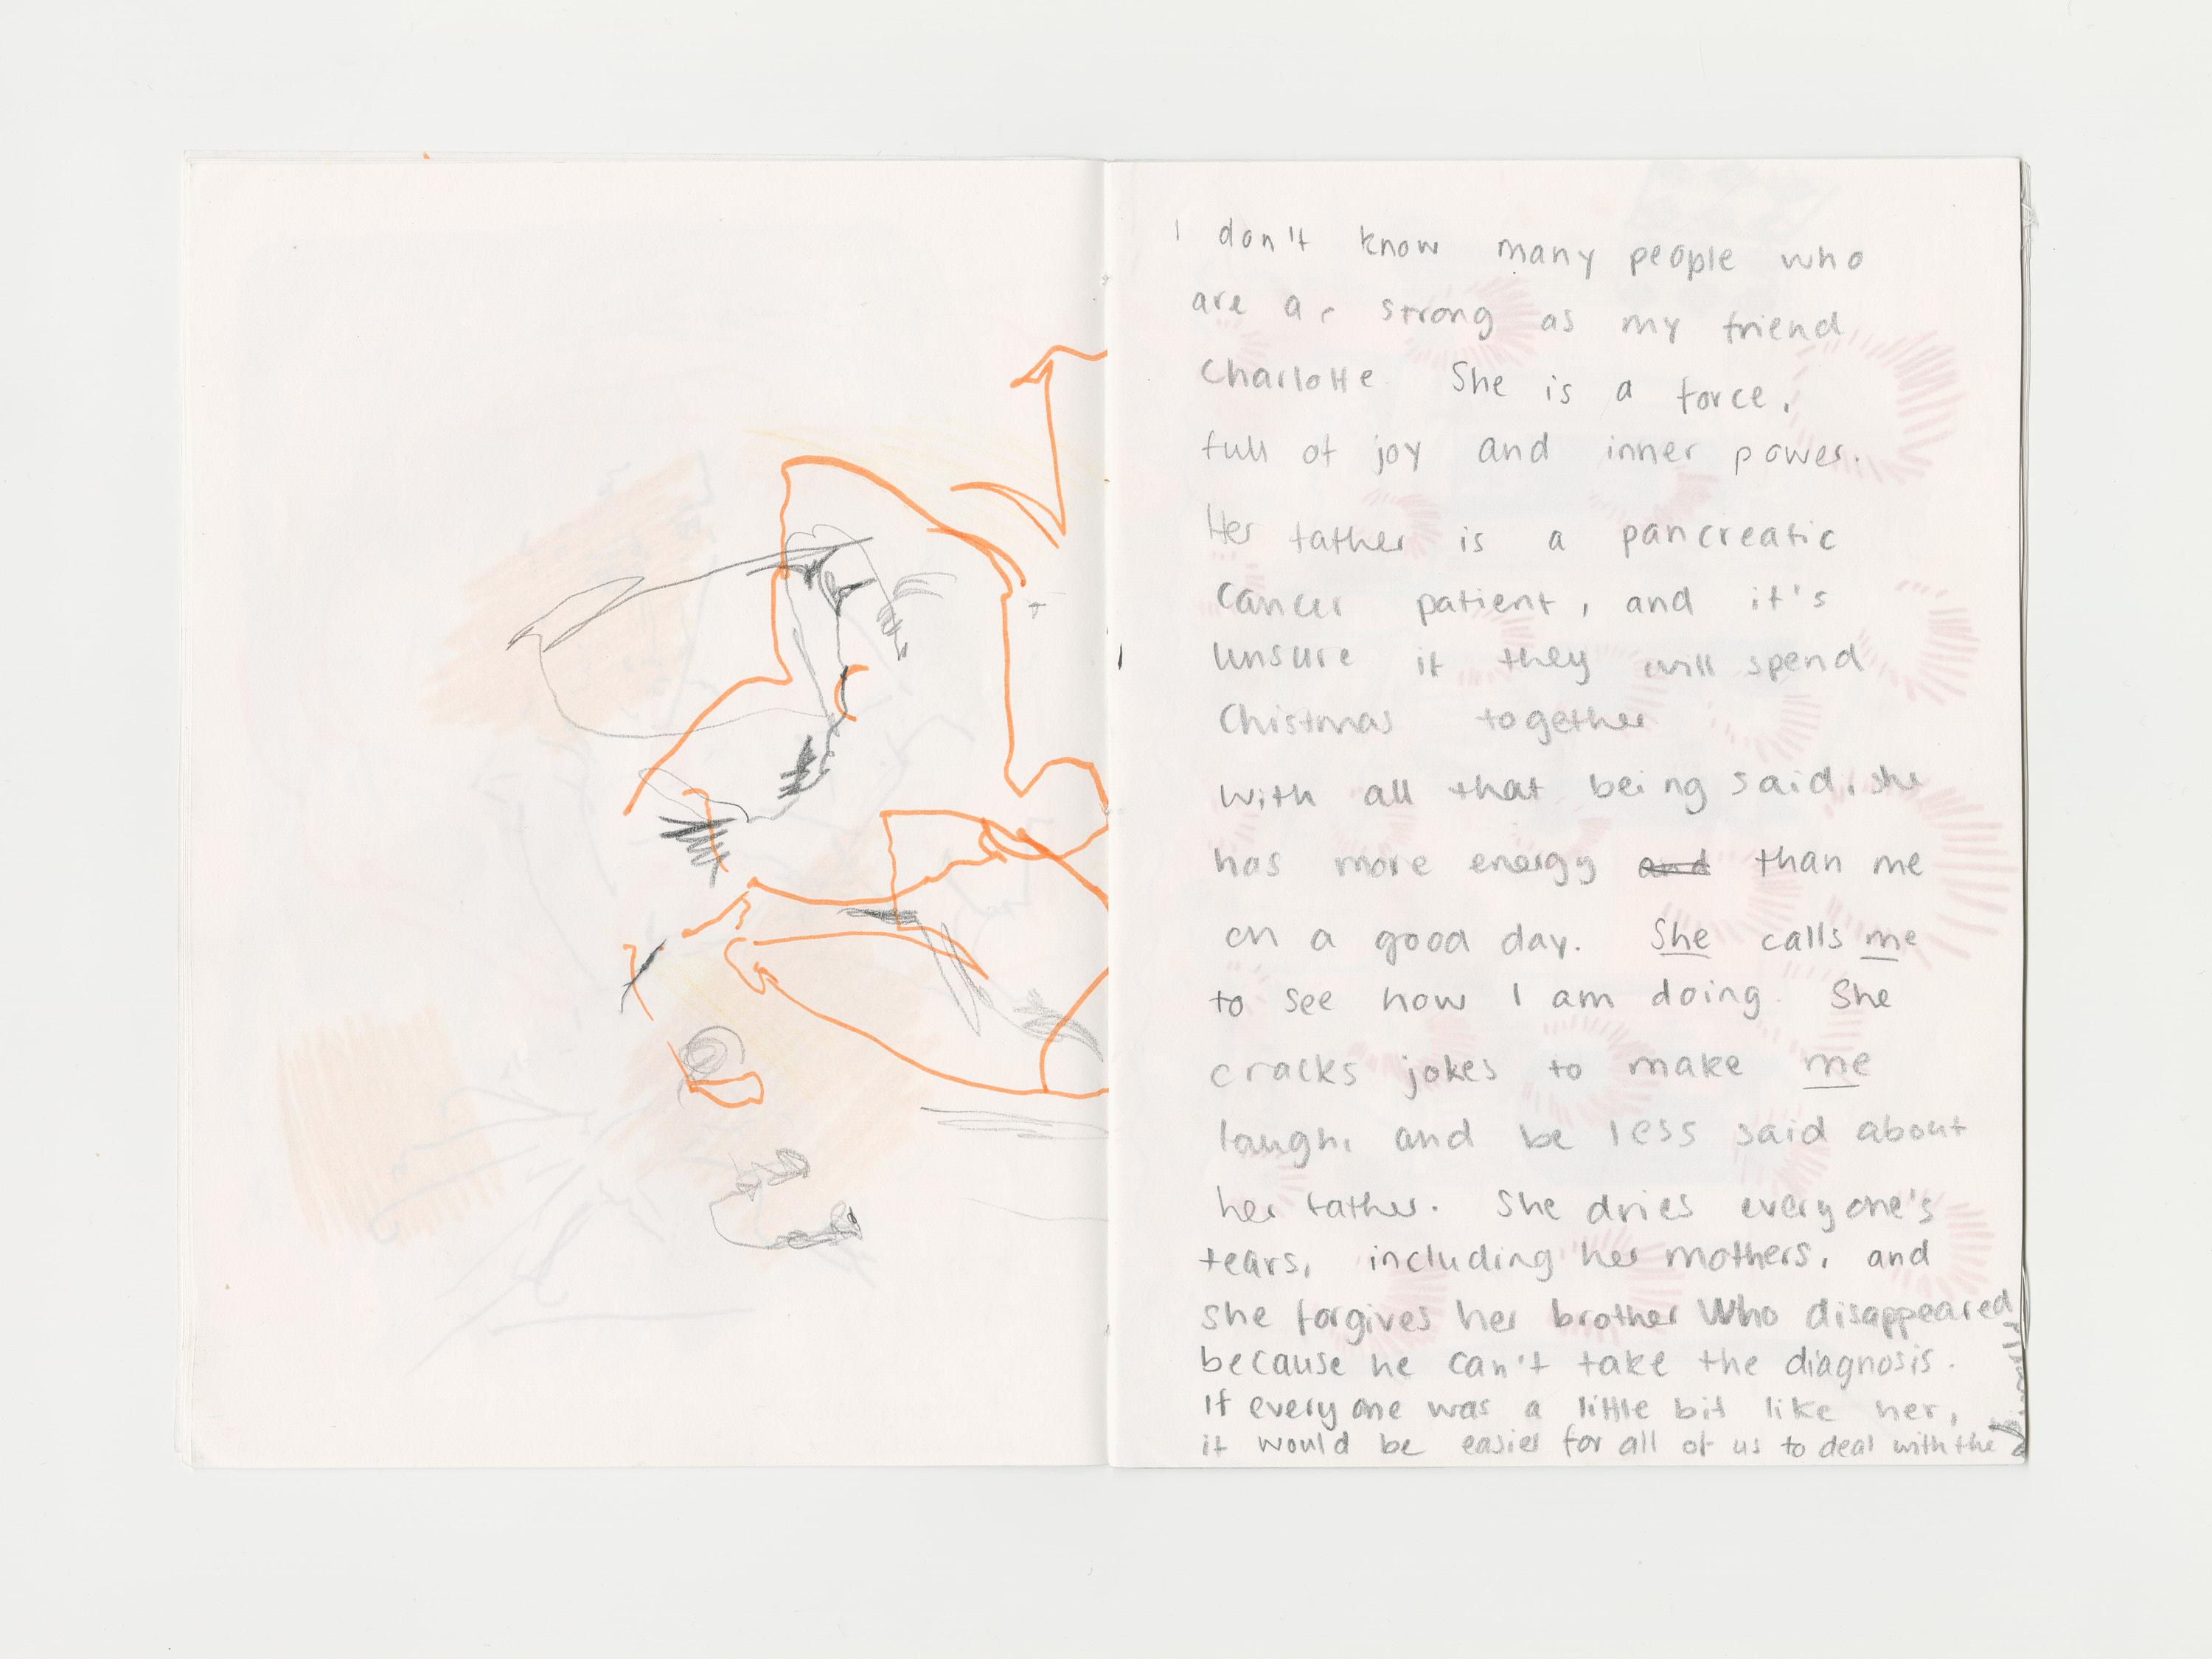 I don't know many people who
are as strong as my friend
Charlotte. She is a force,
full of joy and inner power.
Her father is a pancreatic
cancer patient, and it's
unsure if they will spend
Chistmas together
With all that being said, she
has more energy and than me
on a good day. She calls me
to see how I am doing. She
cracks jokes to make me
laugh, and be less said about
her father. She dries everyone's
tears, including her mothers, and
she forgives her brother Who disappeared
because he can't take the diagnosis.
If everyone was a little bit like her,
it would be easier for all of us to deal with the